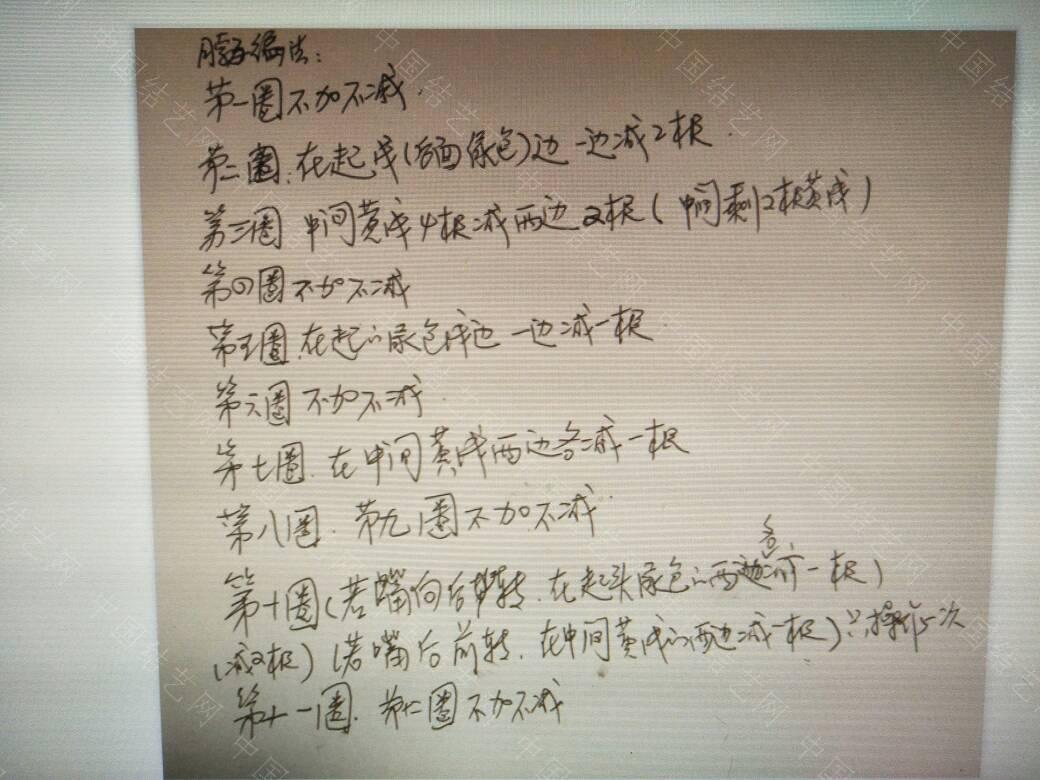 脖子编法:
第一圈不加不减.
第二圈.在起线(后面绿色)边一边减2根.
第三圈 中间黄线4根减两边2根(中间剩2根黄线)
第四圈不加不减
第五圈.在起的绿色线边一边减一根.
第六圈 不加不减.
第七圈.在中间黄线两边各减一根
第八圈.第九圈不加不减.
第十圈(若嘴向后转.在起头绿色的两边各减一根)
(减2根)(若嘴后前转.在中间黄线的两边减一根)只操作一次
第十一圈.第十二圈不加不减
中国结艺网